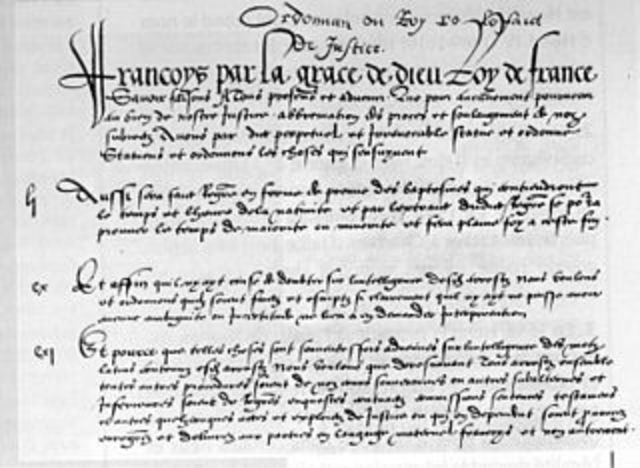 Ordonnan du Roy
De Justice.
francoys par la grace de dieu Roy de france
Savoir faisons A tous presens et advenir Que pour aucunement pourveoir
au bien de nostre Justice abbreviation des proces et soulagement de noz
subiectz Avons par edict perpetuel et Irrevocable statue et ordonne
Statuons et ordonnons les choses qui sensuyvent
lj
Aussi sera faict Regre en forme de preuve des baptesmes qui contiendront
le temps et lheure de la nativite et par lextraict dudict Regre se pora
prouver le temps de maiorite ou minorite et fera plaine foy a ceste fin
cx
Et affin quil ny ayt cause de doubter sur lintelligence desdz arrestz Nous voulons
et ordonnons quilz soient faictz et escriptz si clairement quil ny ayt ne puisse avoir
aucune ambiguite ou Incertitude ne lieu a en demander Interpretation
cxj
Et pource que telles choses sont souvent advenues sur lintelligence des motz
latins contenuz esdz arrestz Nous voulons que doresnavant Tous arrestz ensemble
toutes autres procedures soient de noz cours souveraines ou autres subalternes et
Inferieures soient de Registres enquestes contractz commissions sentences testamens
et autres quelzconques actes et exploictz de Justice ou qui en dependent soient prononcez
enregistrez et delivrez aux parties en langage maternel francoys et non autrement